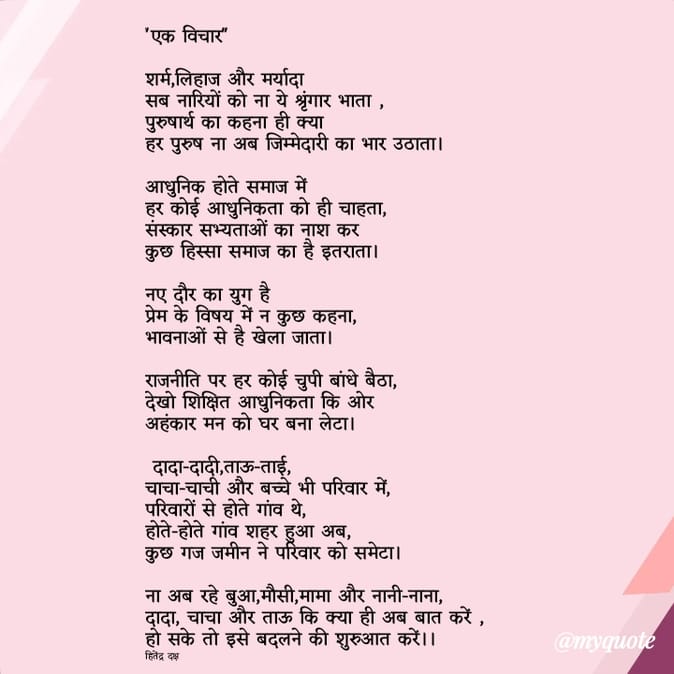 'एक विचार"
शर्म,लिहाज और मर्यादा
सब नारियों को ना ये श्रृंगार भाता ,
पुरुषार्थ का कहना ही क्या
हर पुरुष ना अब जिम्मेदारी का भार उठाता।
आधुनिक होते समाज में
हर कोई आधुनिकता को ही चाहता,
संस्कार सभ्यताओं का नाश कर
कुछ हिस्सा समाज का है इतराता।
नए दौर का युग है
प्रेम के विषय में न कुछ कहना,
भावनाओं से है खेला जाता।
राजनीति पर हर कोई चुपी बांधे बैठा,
देखो शिक्षित आधुनिकता कि ओर
अहंकार मन को घर बना लेटा।
दादा-दादी,ताऊ-ताई,
चाचा-चाची और बच्चे भी परिवार में,
परिवारों से होते गांव थे,
होते-होते गांव शहर हुआ अब,
कुछ गज जमीन ने परिवार को समेटा।
ना अब रहे बुआ,मौसी,मामा और नानी-नाना,
दादा, चाचा और ताऊ कि क्या ही अब बात करें ,
हो सके तो इसे बदलने की शुरुआत करें।।
हितेंद्र दक्ष
@myquote